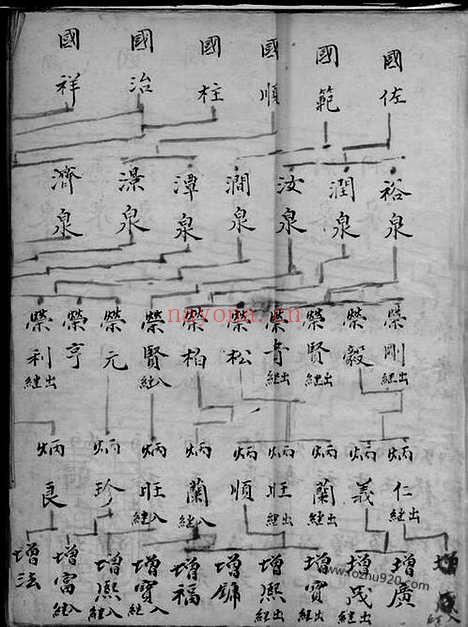 國佐
國範
國順
國柱
國治
國祥
裕泉
潤泉
汝泉
澗泉
潭泉
泉
濟泉
榮剛出継
榮毅
榮賢出継
榮青出継
榮松
榮柏
榮賢入継
榮元
榮亨
榮利出継
炳仁出継
炳義
炳蘭出継
炳旺出継
炳順
炳蘭入継
炳旺入継
炳珍
炳良
增入継
增廣
增茂出継
增寳出継
增熙出継
增鏞
增福
增寳入継
增熙入継
增富入継
增法
nayona.cn
www.fozhu920.com